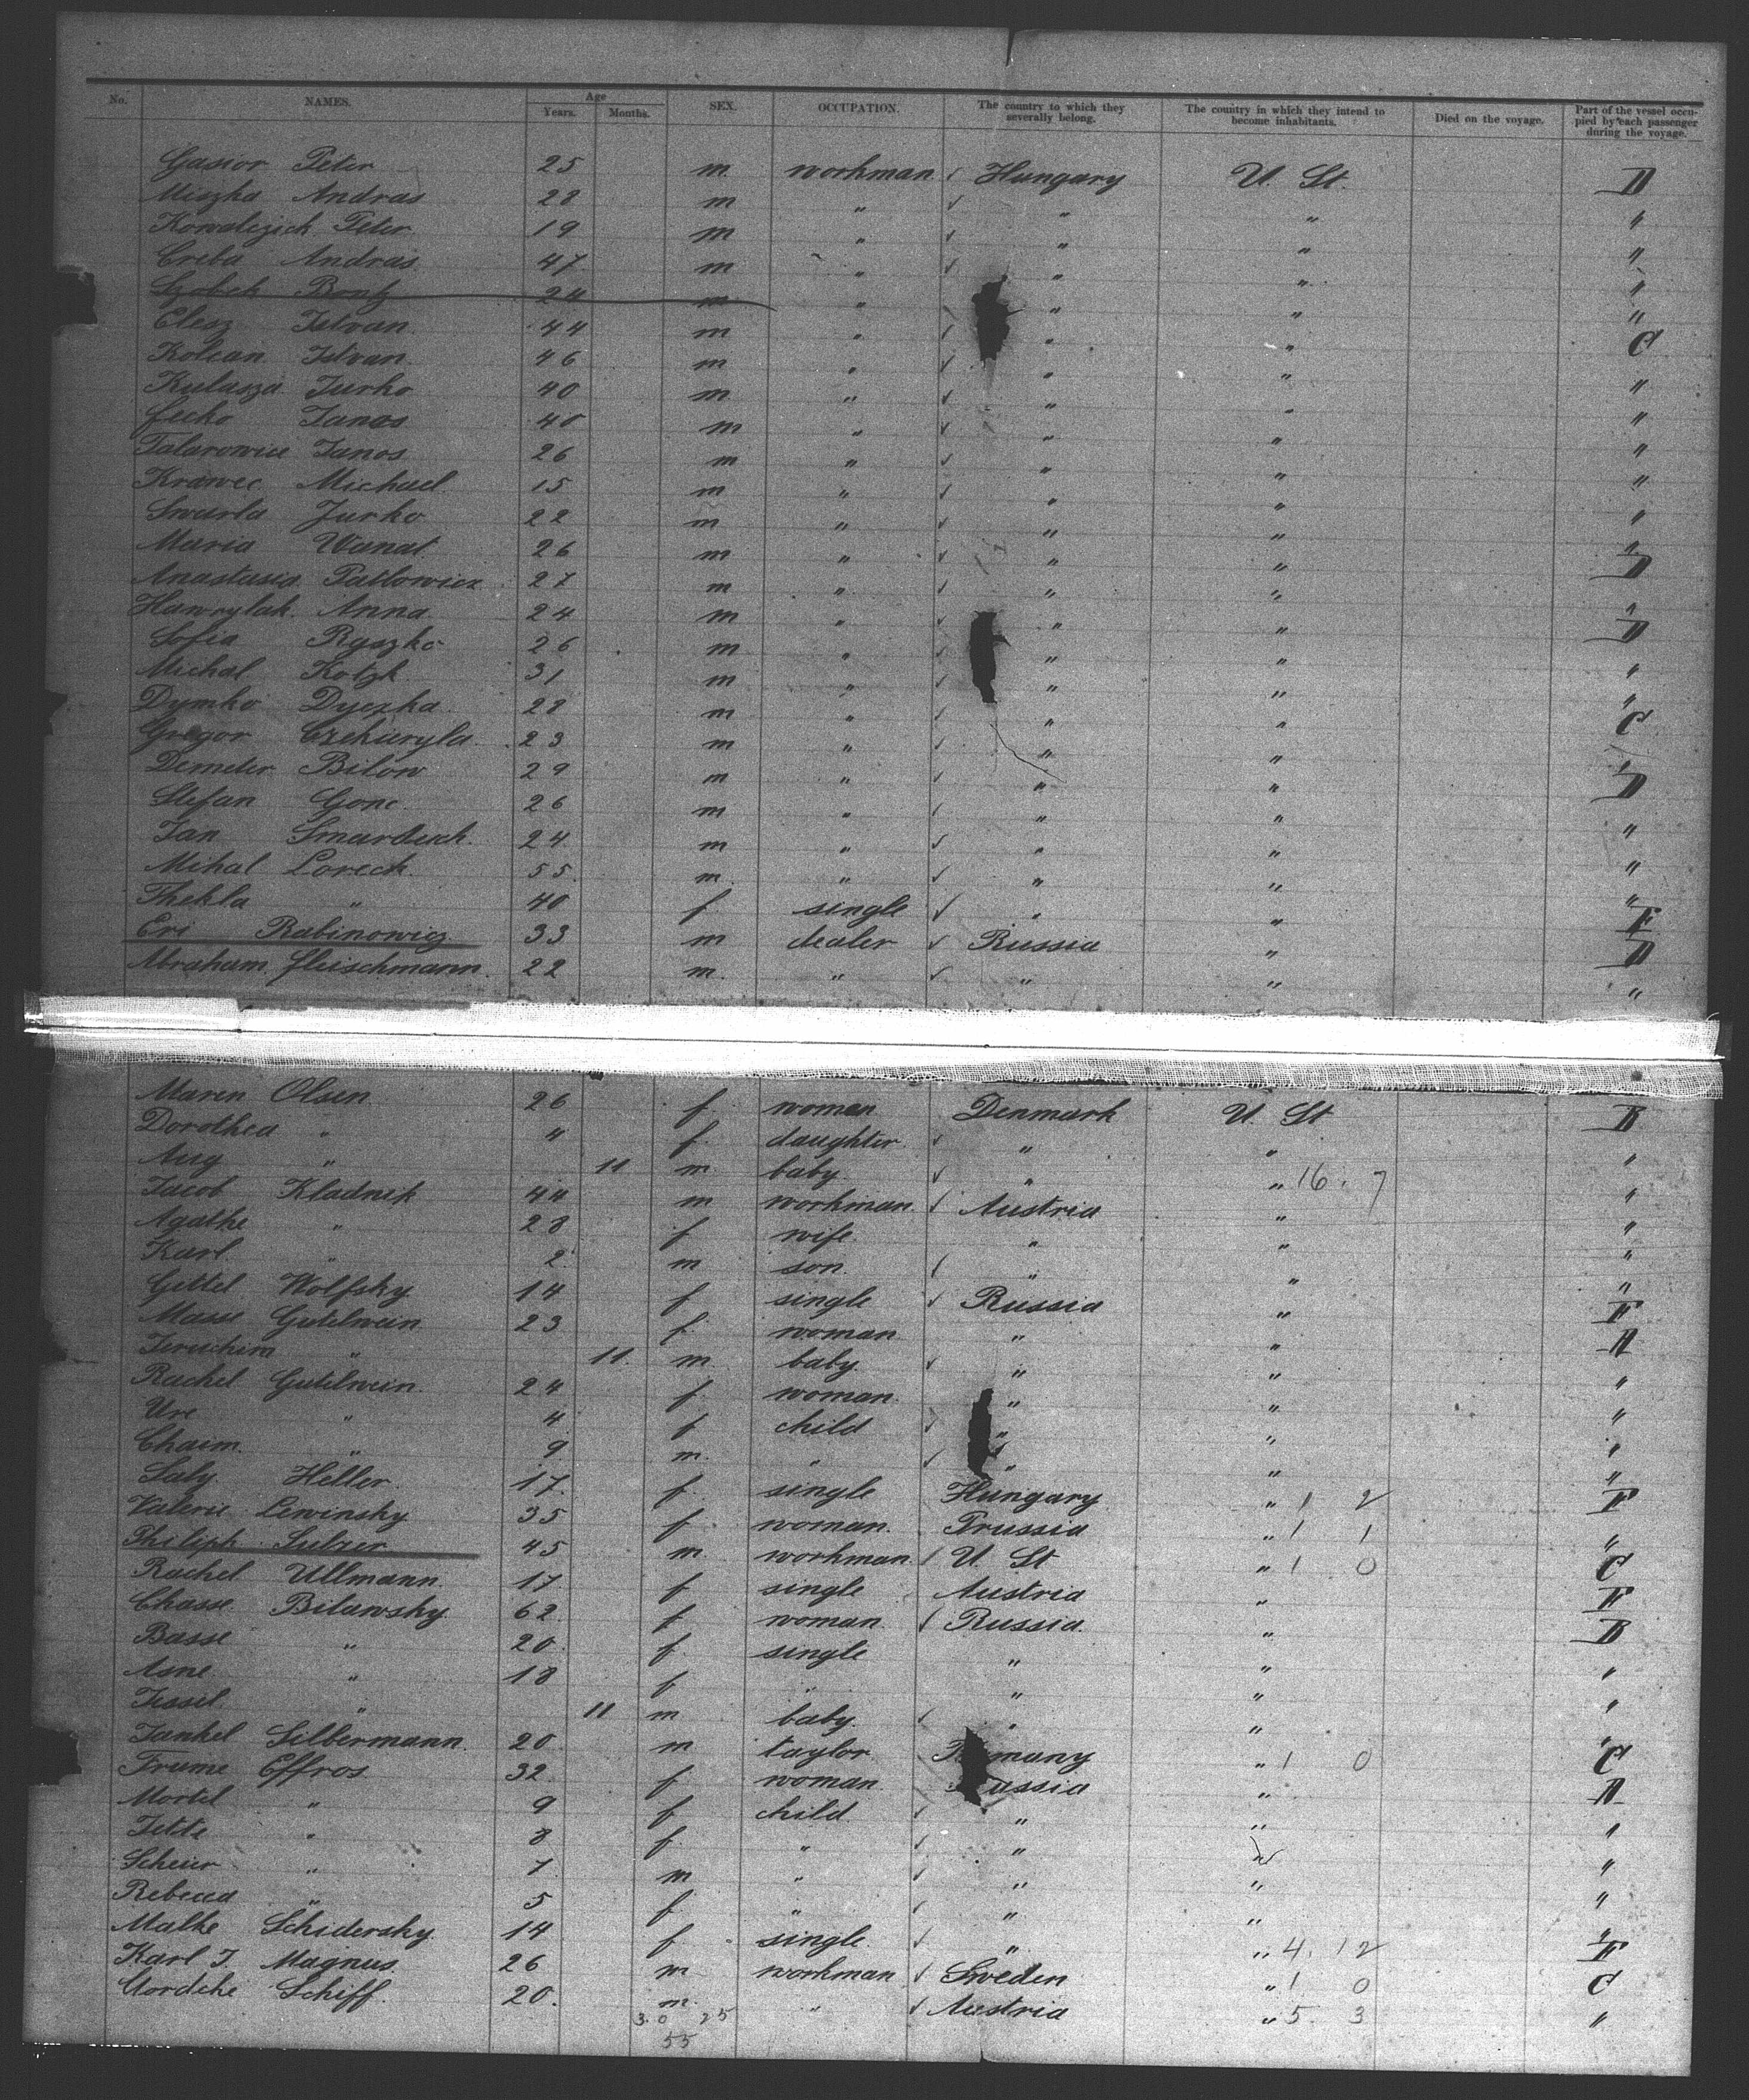 No. NAMES. Age Years. Months. SEX. OCCUPATION. The country to which they severally belong. The country in which they intend to become inhabitants. Died on the voyage. Part of the vessel occupied by each passenger during the voyage.
Gasior Peter 25 m workman Hungary U. St. D
Miszka Andras 28 m " " " "
Kowalczick Peter 19 m " " " "
Creba Andras 47 m " " " "
24 m " " " "
Elesz Istvan 44 m " " " C
Kolcan Istvan 46 m " " " "
Kulasza Jurko 40 m " " " "
Fecko Janos 40 m " " " "
Talarowicz Janos 26 m " " " "
Krawec Michael 15 m " " " "
Swarla Jurko 22 m " " " "
Maria Wanat 26 m " " " D
Anastasia Patlowicz 27 m " " " "
Hawrylak Anna 24 m " " " D
Sofia Ryszko 26 m " " " "
Michal Kotzk 31 m " " " "
Dymko Dyczka 28 m " " " C
Gregor Czekieryla 23 m " " " "
Demeter Bilow 29 m " " " D
Stefan Gonc 26 m " " " "
Jan Smarduch 24 m " " " "
Mihal Loreck 55 m " " " "
Thekla " 40 f single " " F
Eri Rabinowicz 33 m dealer Russia " D
Abraham Fleischmann 22 m " " " "
Maren Olsen 26 f woman Denmark U. St B
Dorothea " 4 f daughter " " "
Aug " 11 m baby " " 16. 7 "
Jacob Kladnik 44 m workman Austria " "
Agathe " 28 f wife " " "
Karl " 2 m son " " "
Gittel Wolfsky 14 f single Russia " F
Masse Gutelwein 23 f woman " " A
Jeruchim " 11 m baby " " "
Rachel Gutelwein 24 f woman " " "
Ure " 4 f child " " "
Chaim " 9 m " " " "
Saly Heller 17 f single Hungary " 1 2 F
Valerie Lewinsky 35 f woman Prussia " 1 1 "
Philiph Sulzer 45 m workman U. St " 1 0 C
Rachel Ullmann 17 f single Austria " F
Chasse Bilawsky 62 f woman Russia " B
Basse " 20 f single " " "
Asne " 18 f " " " "
Jessil " 11 m baby " " "
Jankel Silbermann 20 m taylor many " 1 0 C
Frume Effros 32 f woman ussia " A
Mortel " 9 f child " " "
Jette " 8 f " " " "
Scheier " 7 m " " " "
Rebecca " 5 f " " " "
Malke Schidersky 14 f single " " 4. 12 F
Karl J. Magnus 26 m workman Sweden " 1 0 C
Mordche Schiff 20 m " Austria " 5. 3 "
30 25
55